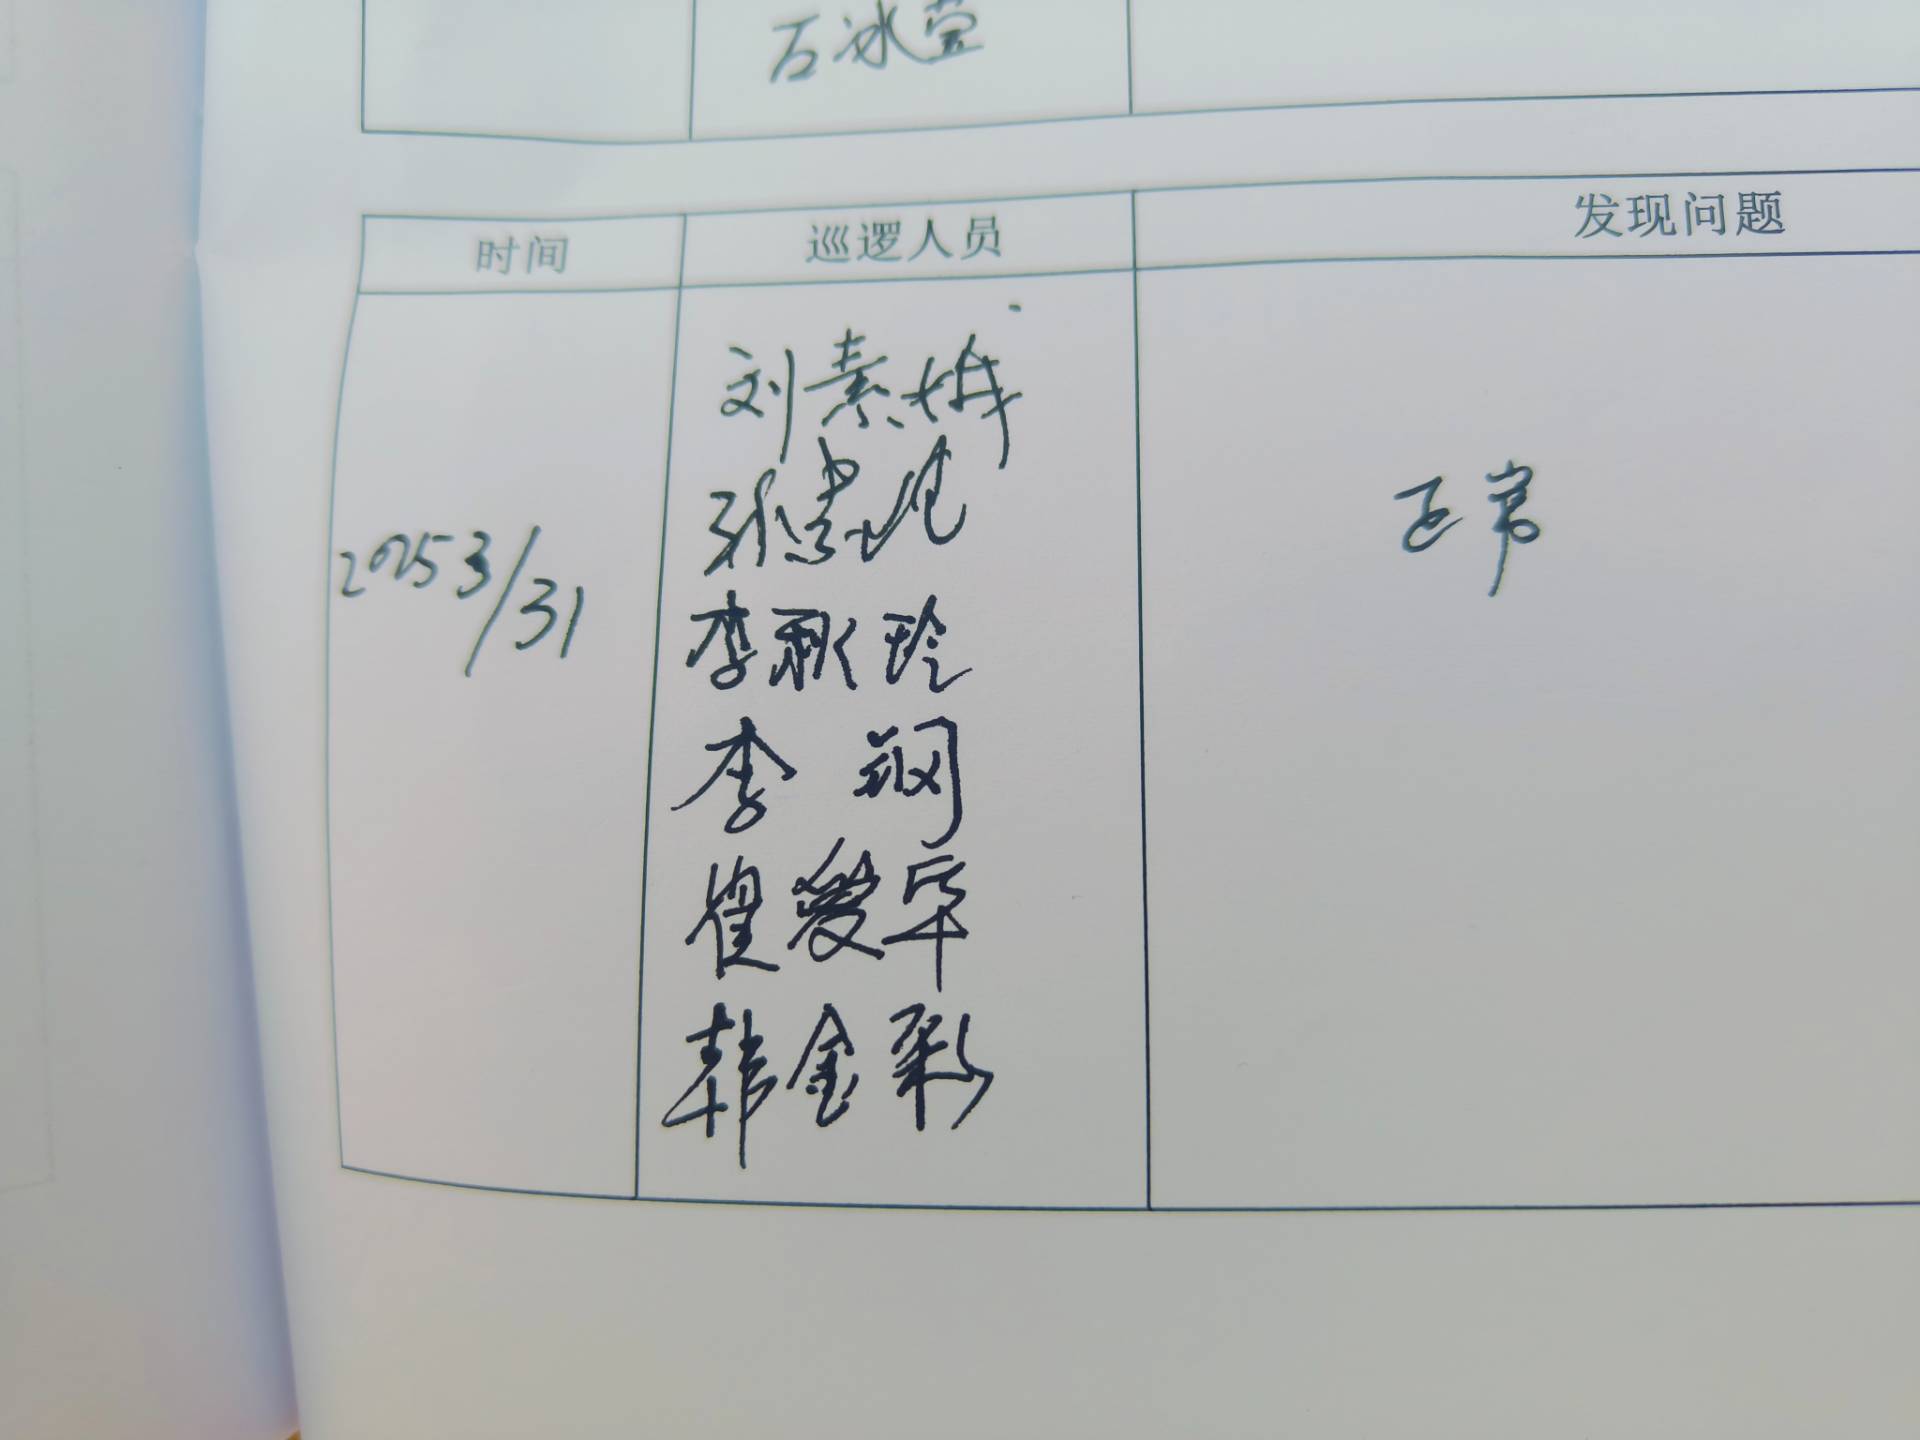 石冰莹
时间 巡逻人员 发现问题
刘素娥
李秋玲
李钢
2025 3/31
正常
崔爱平
韩金彩